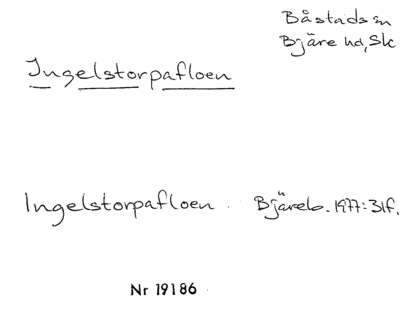 Båstads sn
Bjäre hd, Sk
Ingelstorpafloen
Ingelstorpafloen Bjäreb. 1977:31f.
Nr 19186